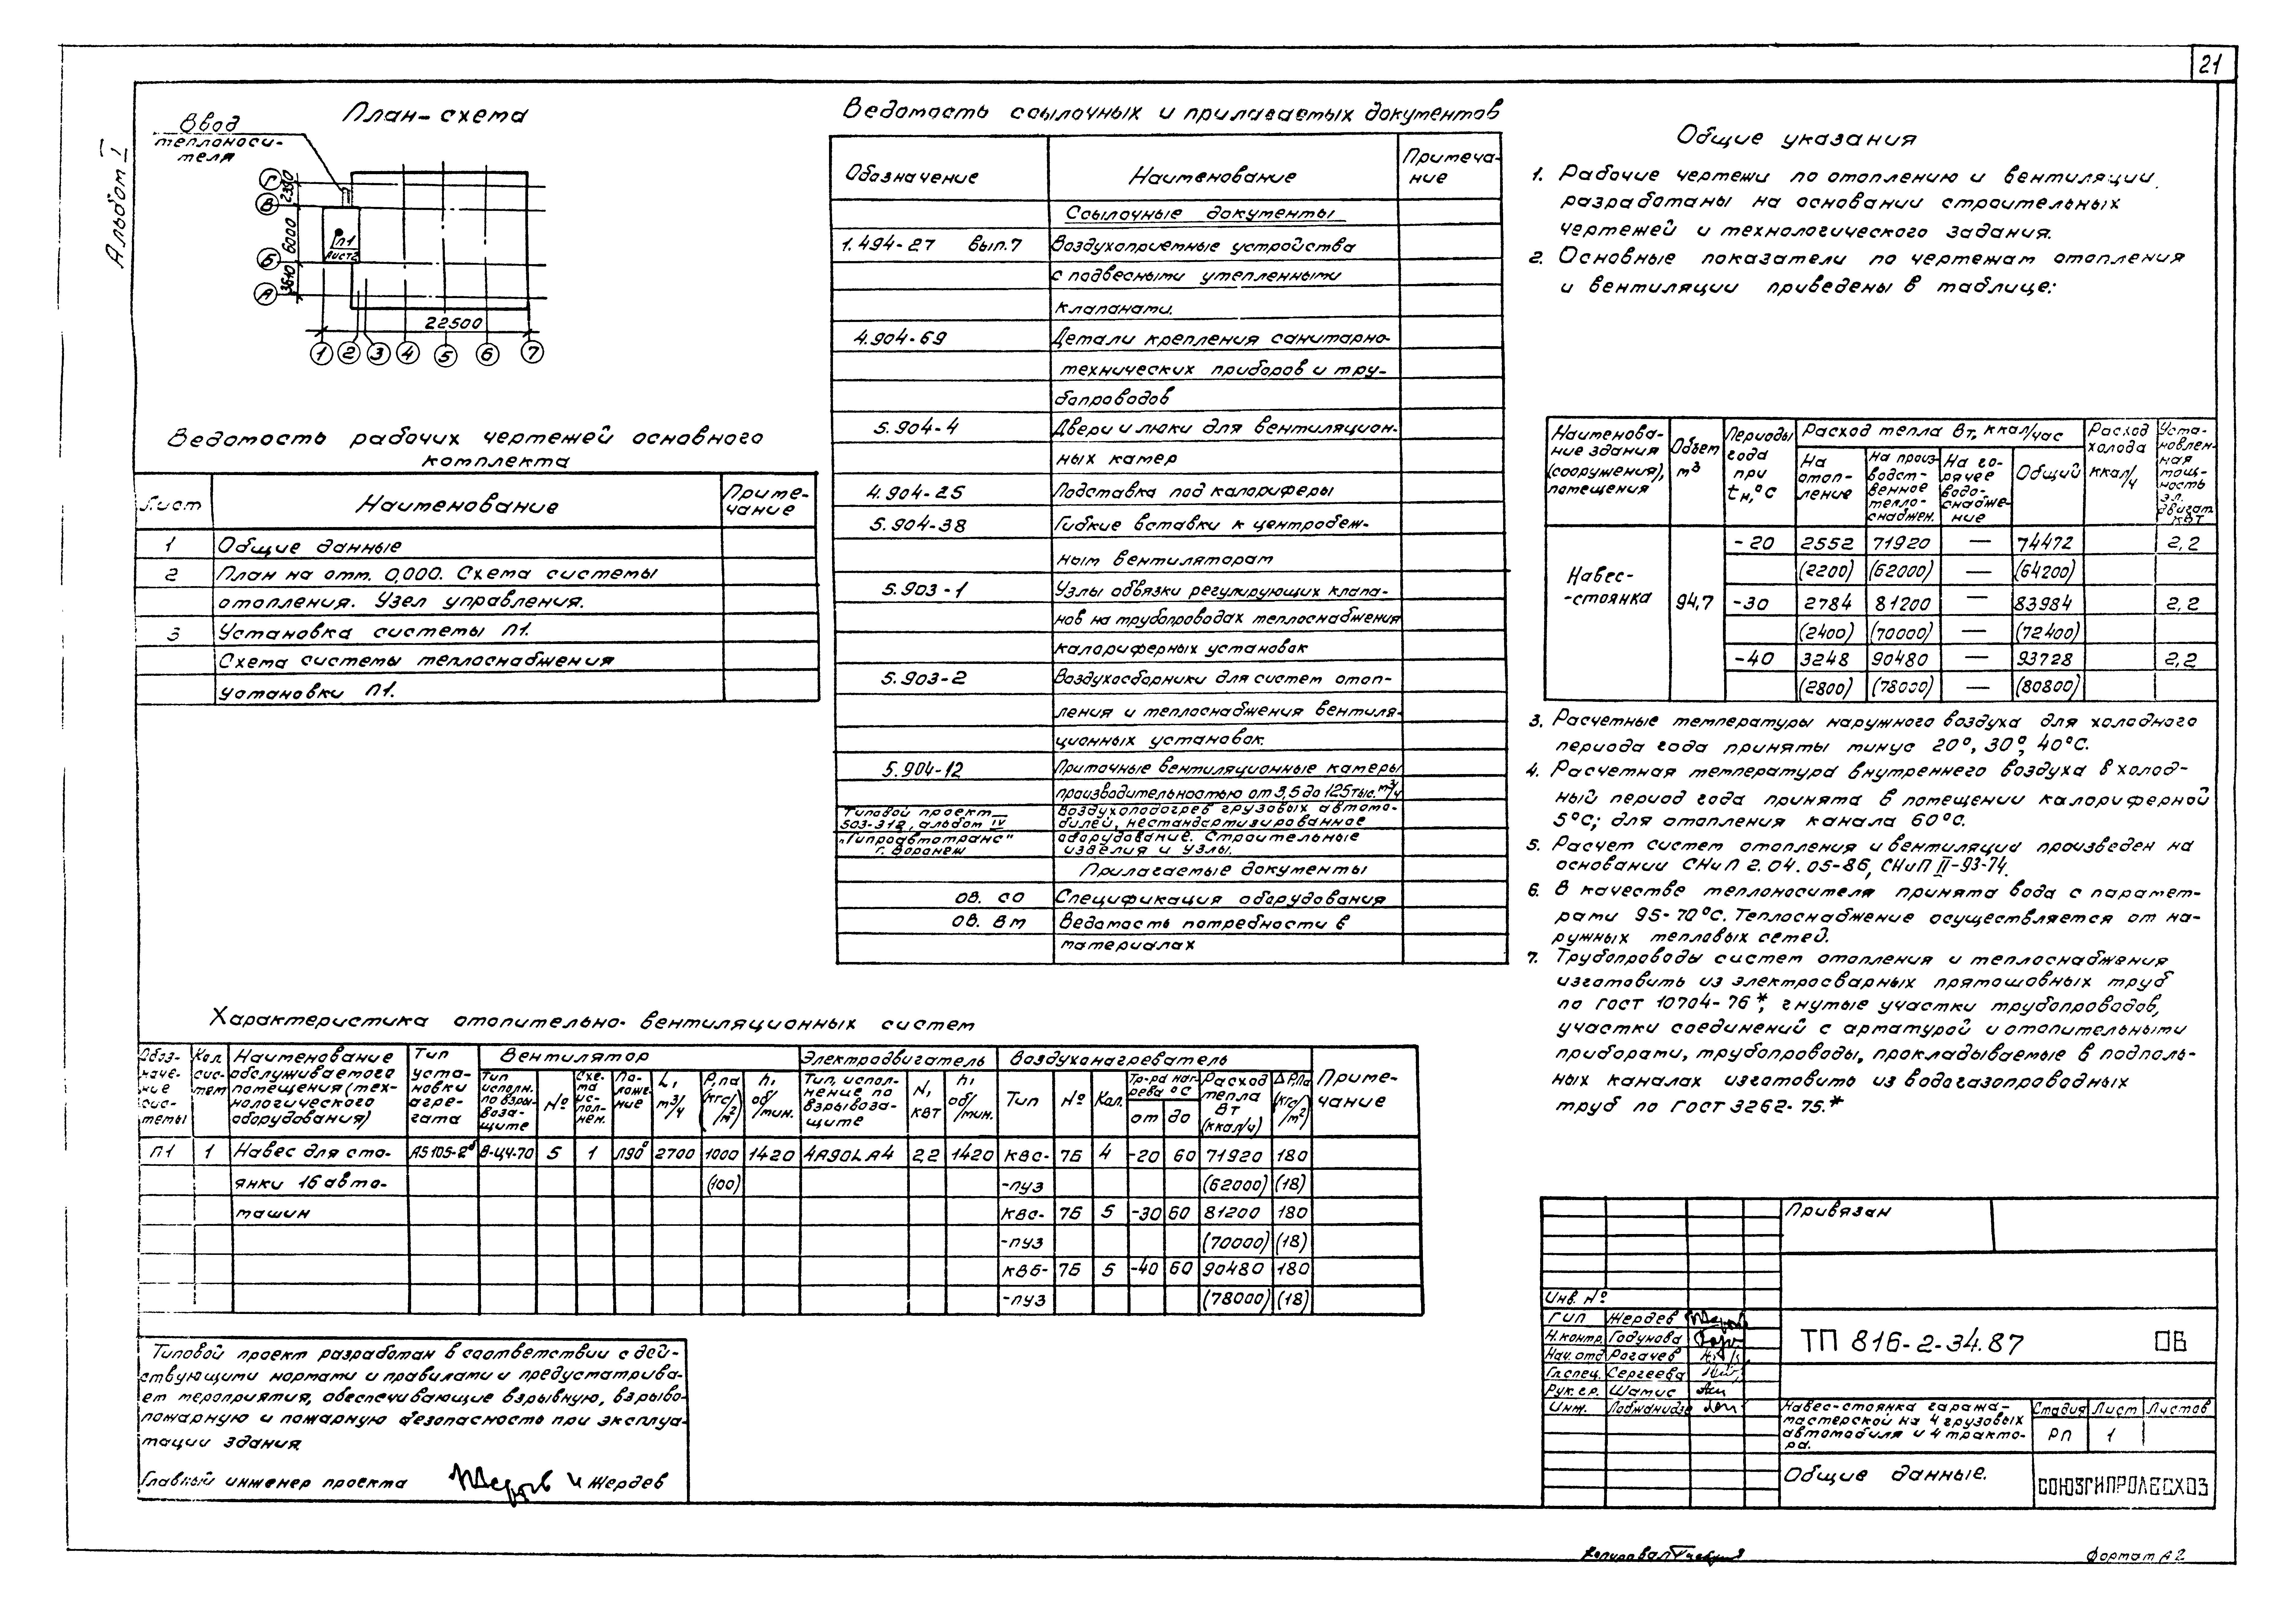 21
Альбом I
План-схема
Ввод
теплоноси-
теля
Г
В
Б
А
2390
6000
3610
П1
лист2
22500
1 2 3 4 5 6 7
Ведомость рабочих чертежей основного
комплекта
Лист Наименование Приме-
чание
1 Общие данные
2 План на отм. 0,000. Схема системы
отопления. Узел управления.
3 Установка системы П1.
Схема системы теплоснабжения
установки П1.
Ведомость ссылочных и прилагаемых документов
Обозначение Наименование Примеча-
ние
Ссылочные документы
1.494-27 вып.7 Воздухоприемные устройства
с подвесными утепленными
клапанами.
4.904-69 Детали крепления санитарно-
технических приборов и тру-
бопроводов
5.904-4 Двери и люки для вентиляцион-
ных камер
4.904-25 Подставка под калориферы
5.904-38 Гибкие вставки к центробеж-
ным вентиляторам
5.903-1 Узлы обвязки регулирующих клапа-
нов на трубопроводах теплоснабжения
калориферных установок
5.903-2 Воздухосборники для систем отоп-
ления и теплоснабжения вентиля-
ционных установок.
5.904-12 Приточные вентиляционные камеры
производительностью от 3,5 до 125 тыс. м³/ч
Типовой проект Воздухоподогрев грузовых автомо-
503-318, альбом IV билей, нестандартизированное
„Гипроавтотранс" оборудование. Строительные
г. Воронеж изделия и узлы.
Прилагаемые документы
ОВ. СО Спецификация оборудования
ОВ. Вм Ведомость потребности в
материалах
Общие указания
1. Рабочие чертежи по отоплению и вентиляции
разработаны на основании строительных
чертежей и технологического задания.
2. Основные показатели по чертежам отопления
и вентиляции приведены в таблице:
Наименова-
ние здания
(сооружения),
помещения
Объем
м³
Периоды
года
при
tн,°С
Расход тепла Вт, ккал/час
На
отоп-
ление
На произ-
водст-
венное
тепло-
снабжен.
На го-
рячее
водо-
снабже-
ние
Общий
Расход
холода
ккал/ч
Уста-
новлен-
ная
мощ-
ность
эл.
двигат.
кВт
Навес-
-стоянка
94,7
-20 2552 71920 — 74472 2,2
(2200) (62000) — (64200)
-30 2784 81200 — 83984 2,2
(2400) (70000) — (72400)
-40 3248 90480 — 93728 2,2
(2800) (78000) — (80800)
3. Расчетные температуры наружного воздуха для холодного
периода года приняты минус 20°, 30°, 40°С.
4. Расчетная температура внутреннего воздуха в холод-
ный период года принята в помещении калориферной
5°С; для отопления канала 60°С.
5. Расчет систем отопления и вентиляции произведен на
основании СНиП 2.04.05-86, СНиП II-93-74.
6. В качестве теплоносителя принята вода с парамет-
рами 95-70°С. Теплоснабжение осуществляется от на-
ружных тепловых сетей.
7. Трубопроводы систем отопления и теплоснабжения
изготовить из электросварных прямошовных труб
по ГОСТ 10704-76*, гнутые участки трубопроводов,
участки соединений с арматурой и отопительными
приборами, трубопроводы, прокладываемые в подполь-
ных каналах изготовить из водогазопроводных
труб по ГОСТ 3262-75.*
Характеристика отопительно-вентиляционных систем
Обоз-
наче-
ние
сис-
темы
Кол.
сис-
тем
Наименование
обслуживаемого
помещения (тех-
нологического
оборудования)
Тип
уста-
новки
агре-
гата
Вентилятор
Тип
исполн.
по взры-
воза-
щите
№
Схе-
ма
ис-
пол-
нен.
По-
ложе-
ние
L,
м³/ч
Р, па
(кгс/м²)
n,
об/мин.
Электродвигатель
Тип, испол-
нение по
взрывоза-
щите
N,
кВт
n,
об/мин.
Воздухонагреватель
Тип
№
Кол.
Тр-ра наг-
рева °С
от до
Расход
тепла
Вт
(ккал/ч)
ΔРПа
(кгс/м²)
Приме-
чание
П1 1 Навес для сто- А5105-2ᵇ В-Ц4-70 5 1 Л90° 2700 1000 1420 4А90LА4 2,2 1420 КВС- 7Б 4 -20 60 71920 180
янки 16 авто- (100) -ПУЗ (62000) (18)
машин КВС- 7Б 5 -30 60 81200 180
-ПУЗ (70000) (18)
КВБ- 7Б 5 -40 60 90480 180
-ПУЗ (78000) (18)
Типовой проект разработан в соответствии с дей-
ствующими нормами и правилами и предусматрива-
ет мероприятия, обеспечивающие взрывную, взрыво-
пожарную и пожарную безопасность при эксплуа-
тации здания.
Главный инженер проекта Жердев
Привязан
Инв. №
ГИП Жердев
Н.контр. Годунова
Нач. отд Рогачев
Гл.спец. Сергеева
Рук. гр. Шатис
Инж.
ТП 816-2-34.87 ОВ
Навес-стоянка гаража-
мастерской на 4 грузовых
автомобиля и 4 тракто-
ра.
Стадия Лист Листов
РП 1
Общие данные.
СОЮЗГИПРОЛЕСХОЗ
Копировал
Формат А2